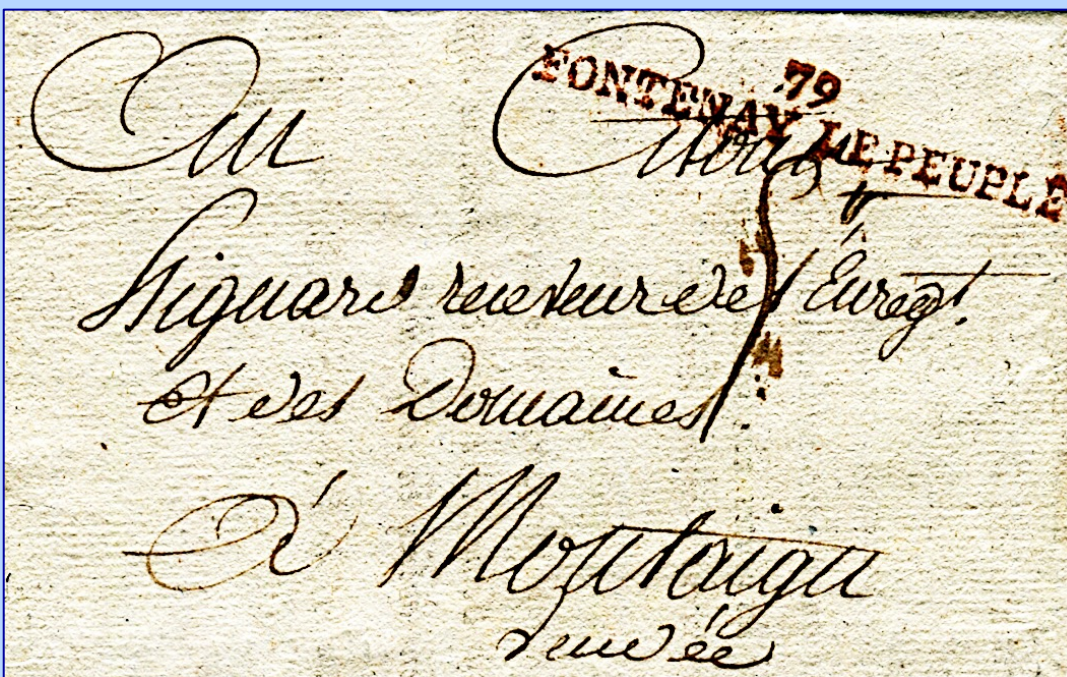 79
FONTENAY LE PEUPLE
Au Citoyen
receveur de l'Enregt.
et des Domaines
à Montaigu
vendée